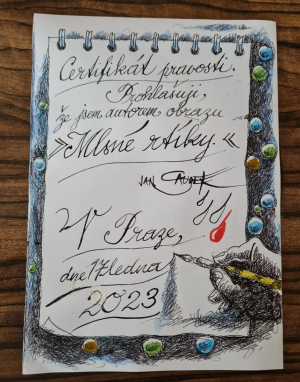 Certifikát pravosti.
Prohlašuji,
že jsem autorem obrazu
"Mlsné rtíky."
JAN SAUDEK
V Praze,
dne 17.ledna
2023